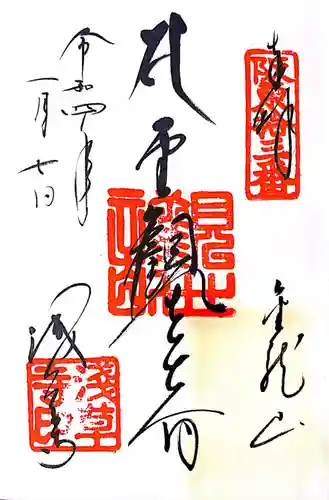 奉拝
坂東第十三番
金龍山
聖観世音
令和四年
一月七日
浅草寺
淺草
寺印